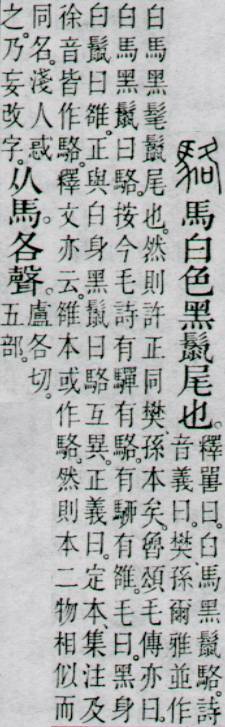 駱 馬白色黑鬣尾也。
釋嘼曰。白馬黑鬣駱。詩
音義曰。樊孫爾雅並作
白馬黑髦鬣尾也。然則許正同樊孫本矣。魯頌毛傳亦曰。
白馬黑鬣曰駱。按今毛詩有驒有駱。有駵有雒。毛曰。黑身
白鬣曰雒。正與白身黑鬣曰駱互異。正義曰。定本、集注及
徐音皆作駱。釋文亦云。雒本或作駱。然則本二物相似而
同名。淺人惑
之。乃妄改字。
从馬各聲。
盧各切。
五部。